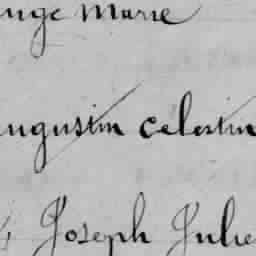 ange Marie
augustin Celestin
Joseph Julie